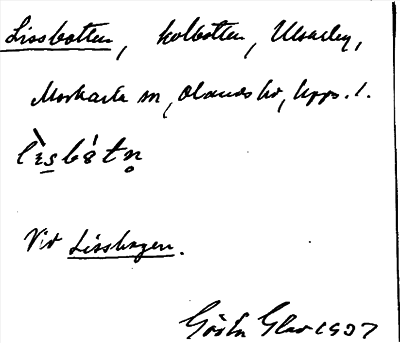 Lissbotten, kolbotten, Ulvarby,
Morkarla sn, Olands hd, Upps. l.
lìsbåtn̥
Vid Lisshagen.
Gösta Glav 1937